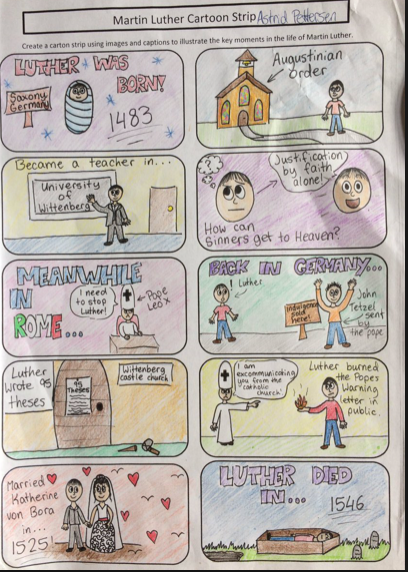 Martin Luther Cartoon Strip Astrid Pettersen
Create a carton strip using images and captions to illustrate the key moments in the life of Martin Luther.
LUTHER WAS
BORN!
Saxony
Germany
1483
Augustinian
order
Became a teacher in...
University
of
Wittenberg
???
Justification
by faith
alone!
How can
Sinners get to Heaven?
MEANWHILE
IN
ROME...
I need
to stop
Luther!
Pope
Leo X
BACK IN GERMANY...
! Luther
Indulgences
sold
here!
John
Tetzel
sent
by
the pope
Luther
Wrote 95
theses
95
THESES
Wittenberg
castle church
I am
excommunicating
you from the
catholic
church
Luther burned
the Popes
Warning
letter in
public.
Married
Katherine
von Bora
in...
1525!
LUTHER DIED
IN...
1546